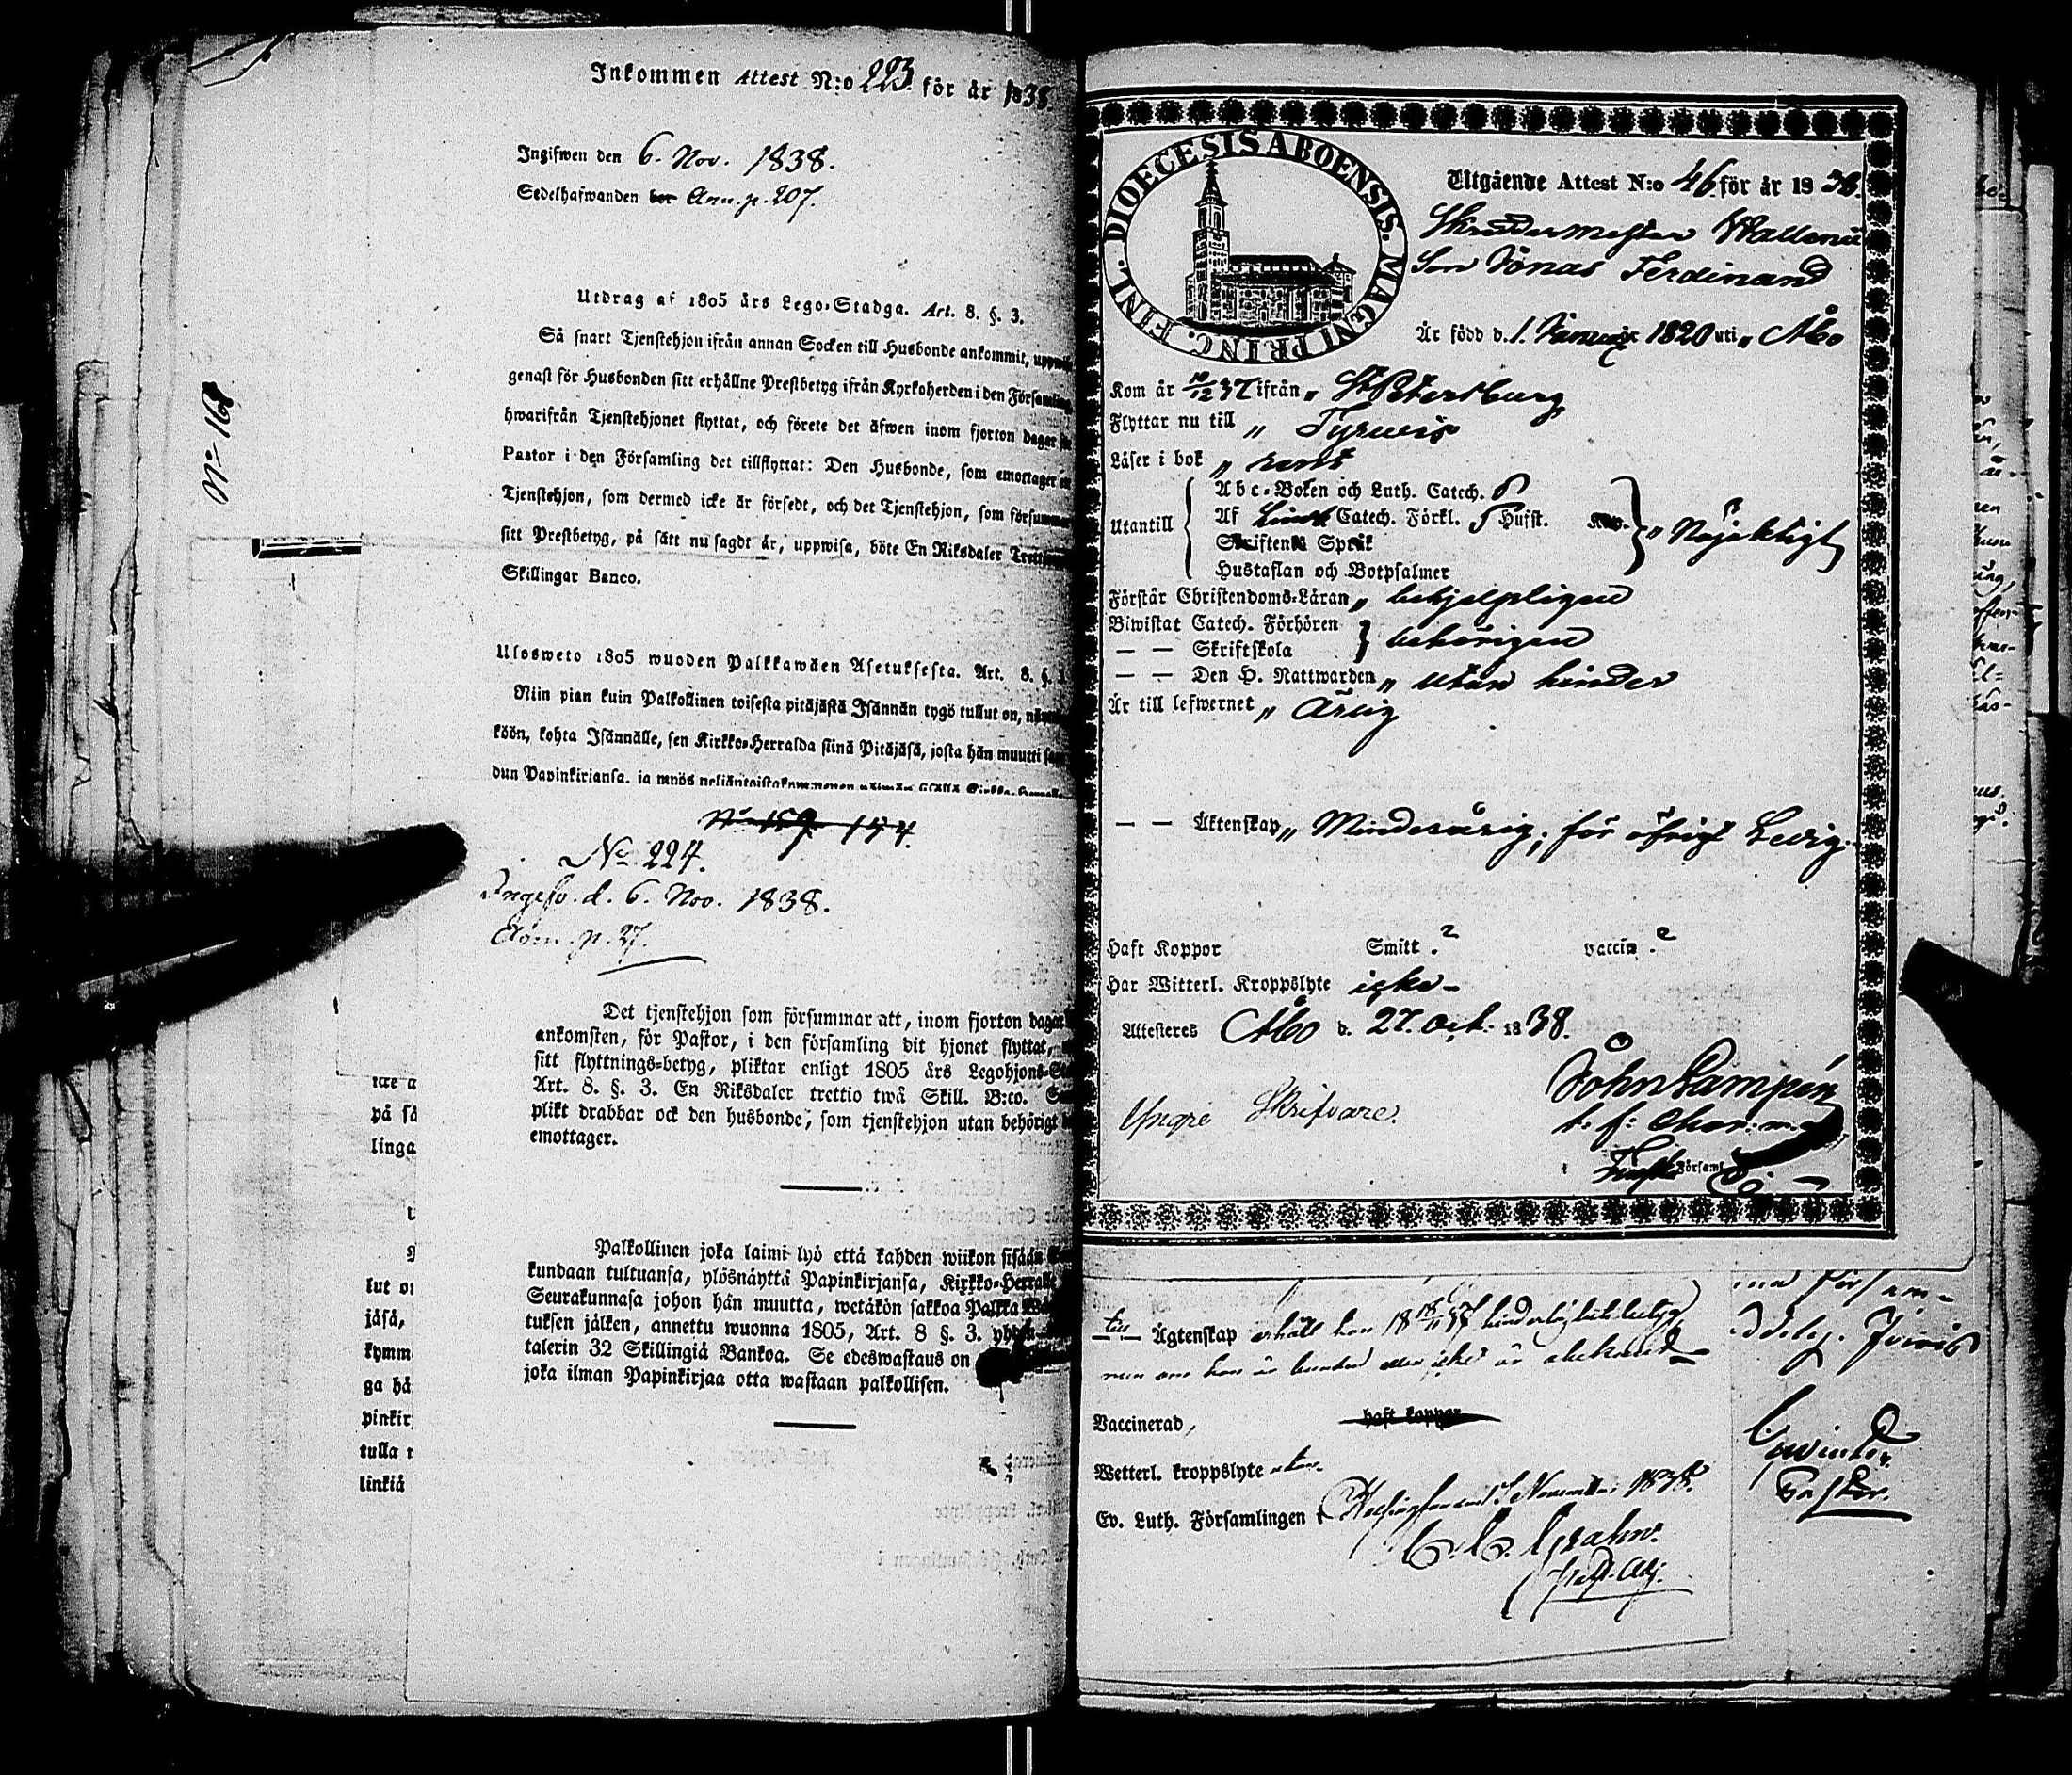 Inkommen Attest N:o 223. för år 1838.
Ingifwen den 6. Nov. 1838.
Sedelhafwanden bor Ann. p. 207.
Utdrag af 1805 års Lego-Stadga. Art. 8. §. 3.
Så snart Tjenstehjon ifrån annan Socken till Husbonde ankommit,
genast för Husbonden sitt erhållne Prestbetyg ifrån Kyrkoherden i den
hwarifrån Tjenstehjonet flyttat, och förete det äfwen inom fjorton dagar
Pastor i den Församling det tillflyttat: Den Husbonde, som emottager
Tjenstehjon, som dermed icke är försedt, och det Tjenstehjon, som
sitt Prestbetyg, på sätt nu sagdt är, uppwisa, böte En Riksdaler
Skillingar Banco.
N:o 168
Ulosweto 1805 wuoden Palkkawäen Asetuksesta. Art. 8. §.
Niin pian kuin Palkollinen toisesta pitäjästä Isännän tygö tullut on,
köön, kohta Isännälle, sen Kirkko-Herralda siinä Pitäjäsä, josta hän muutti
dun Papinkirjansa, ja myös neljäntoistakymmenen
N:o 159 174.
N:o 224.
Ingifv. d. 6. Nov. 1838.
p. 27.
Det tjenstehjon som försummar att, inom fjorton dagar
ankomsten, för Pastor, i den församling dit hjonet flyttat,
sitt flyttnings-betyg, pliktar enligt 1805 års Legohjons-
Art. 8. §. 3. En Riksdaler trettio twå Skill. B:co.
plikt drabbar ock den husbonde, som tjenstehjon utan behörigt
emottager.
Palkollinen joka laimi lyö että kahden wiikon sisään
kundaan tultuansa, ylösnäyttä Papinkirjansa, Kirkko-Herralle
Seurakunnasa johon hän muutta, wetäkön sakkoa Palkka
tuksen jälken, annettu wuonna 1805, Art. 8 §. 3.
talerin 32 Skillingiä Bankoa. Se edeswastaus on
joka ilman Papinkirjaa otta wastaan palkollisen.
på så
linga
lut on
jäsä,
kymm
ga hä
pinkir
tulla
linkiä
DIOECESIS ABOENSIS. MAGNI PRINC. FINL.
Utgående Attest N:o 46 för år 1838.
Skräddermästar Wallenii
Son Jonas Ferdinand
Är född d. 1. Januari 1820 uti „ Åbo
Kom år 10/12 37 ifrån „ St Petersburg
Flyttar nu till „ Tyrvis
Läser i bok „ rent
Utantill
Abc-Boken och Luth. Catech.
Af Catech. Förkl. Hust.
Skriftens Språk
Hustaflan och Botpsalmer
„ Nöjaktigt
Förstår Christendoms-Läran „ behjelpligen
Biwistat Catech. Förhören
— — Skriftskola
behörigen
— — Den H. Nattwarden „ utan hinder
Är till lefwernet „ Ärlig
— — Äktenskap „ Minderårig, för öfrigt Ledig.
Haft Koppor Smitt. ? vaccin. ?
Har Witterl. Kroppslyte icke –
Attesteres Åbo d. 27. Oct. 1838.
Yngre Skrifvare.
John Lampén
Församl
— — Ägtenskap erhöll hon 18 hinderlöshetsbetyg
men om hon är bunden eller icke är obekant
Vaccinerad, haft koppor
Wetterl. kroppslyte utan.
Ev. Luth. Församlingen i Helsingfors den November 1838.
Grahn.
Past. Adj.
Pastor.